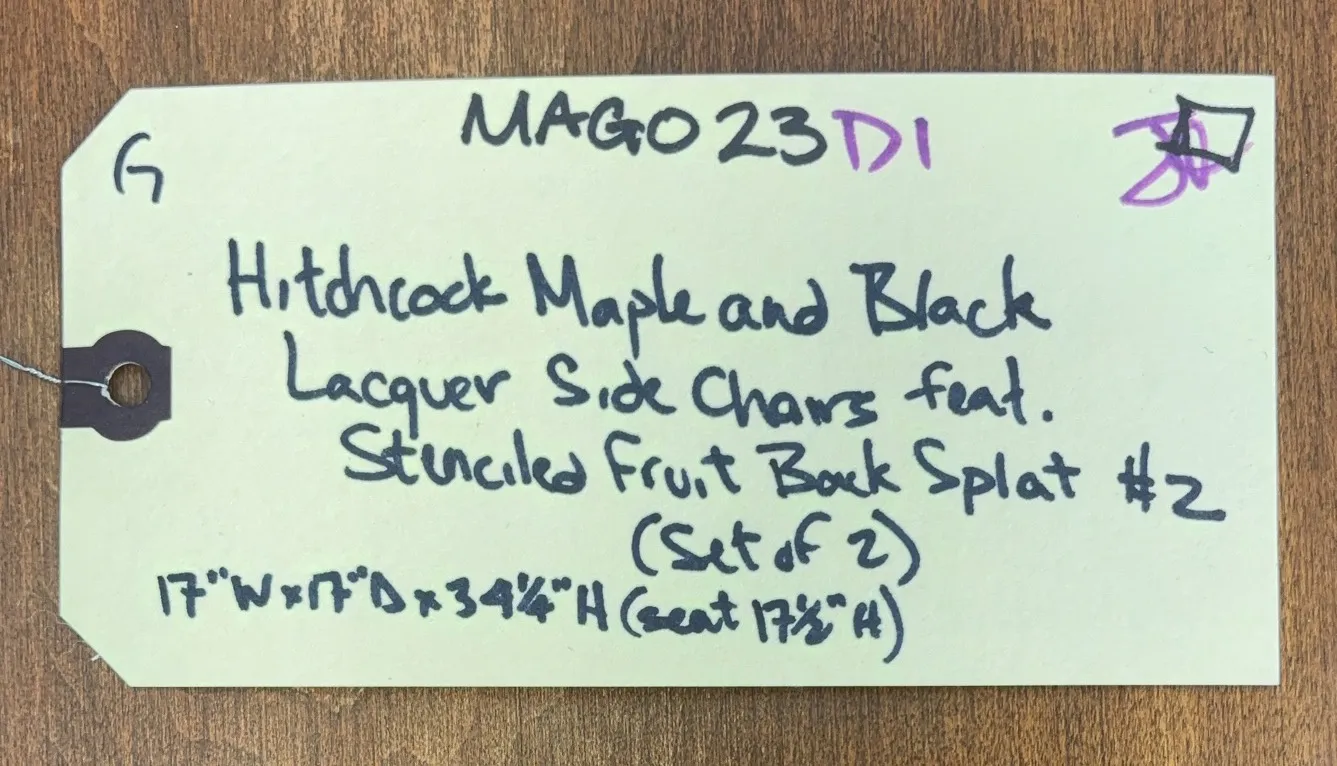 G
MAG023D1
Hitchcock Maple and Black
Lacquer Side Chairs feat.
Stenciled Fruit Back Splat #2
(Set of 2)
17"W x 17"D x 34¼"H (seat 17½"H)